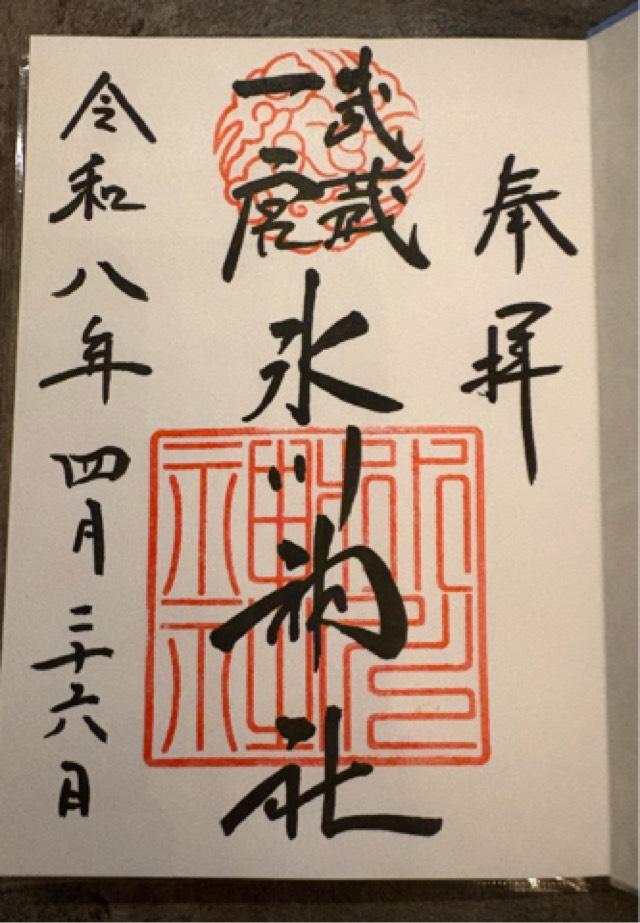 奉拝
武蔵
一宮
氷川神社
令和八年四月二十六日